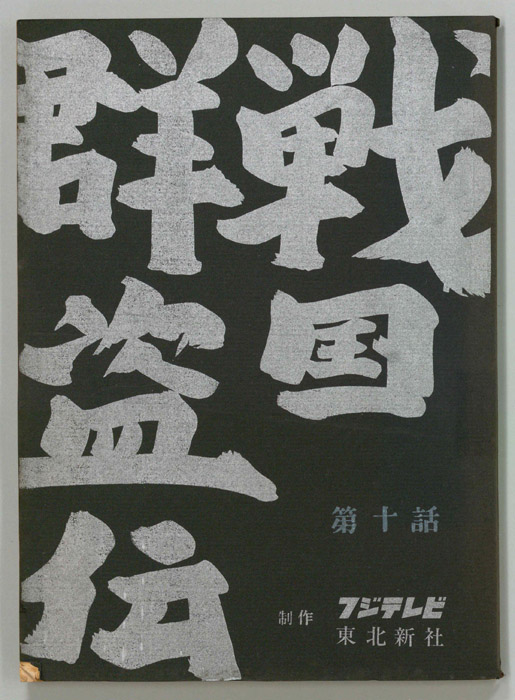 戦国
群盗伝
第十話
制作 フジテレビ
東北新社